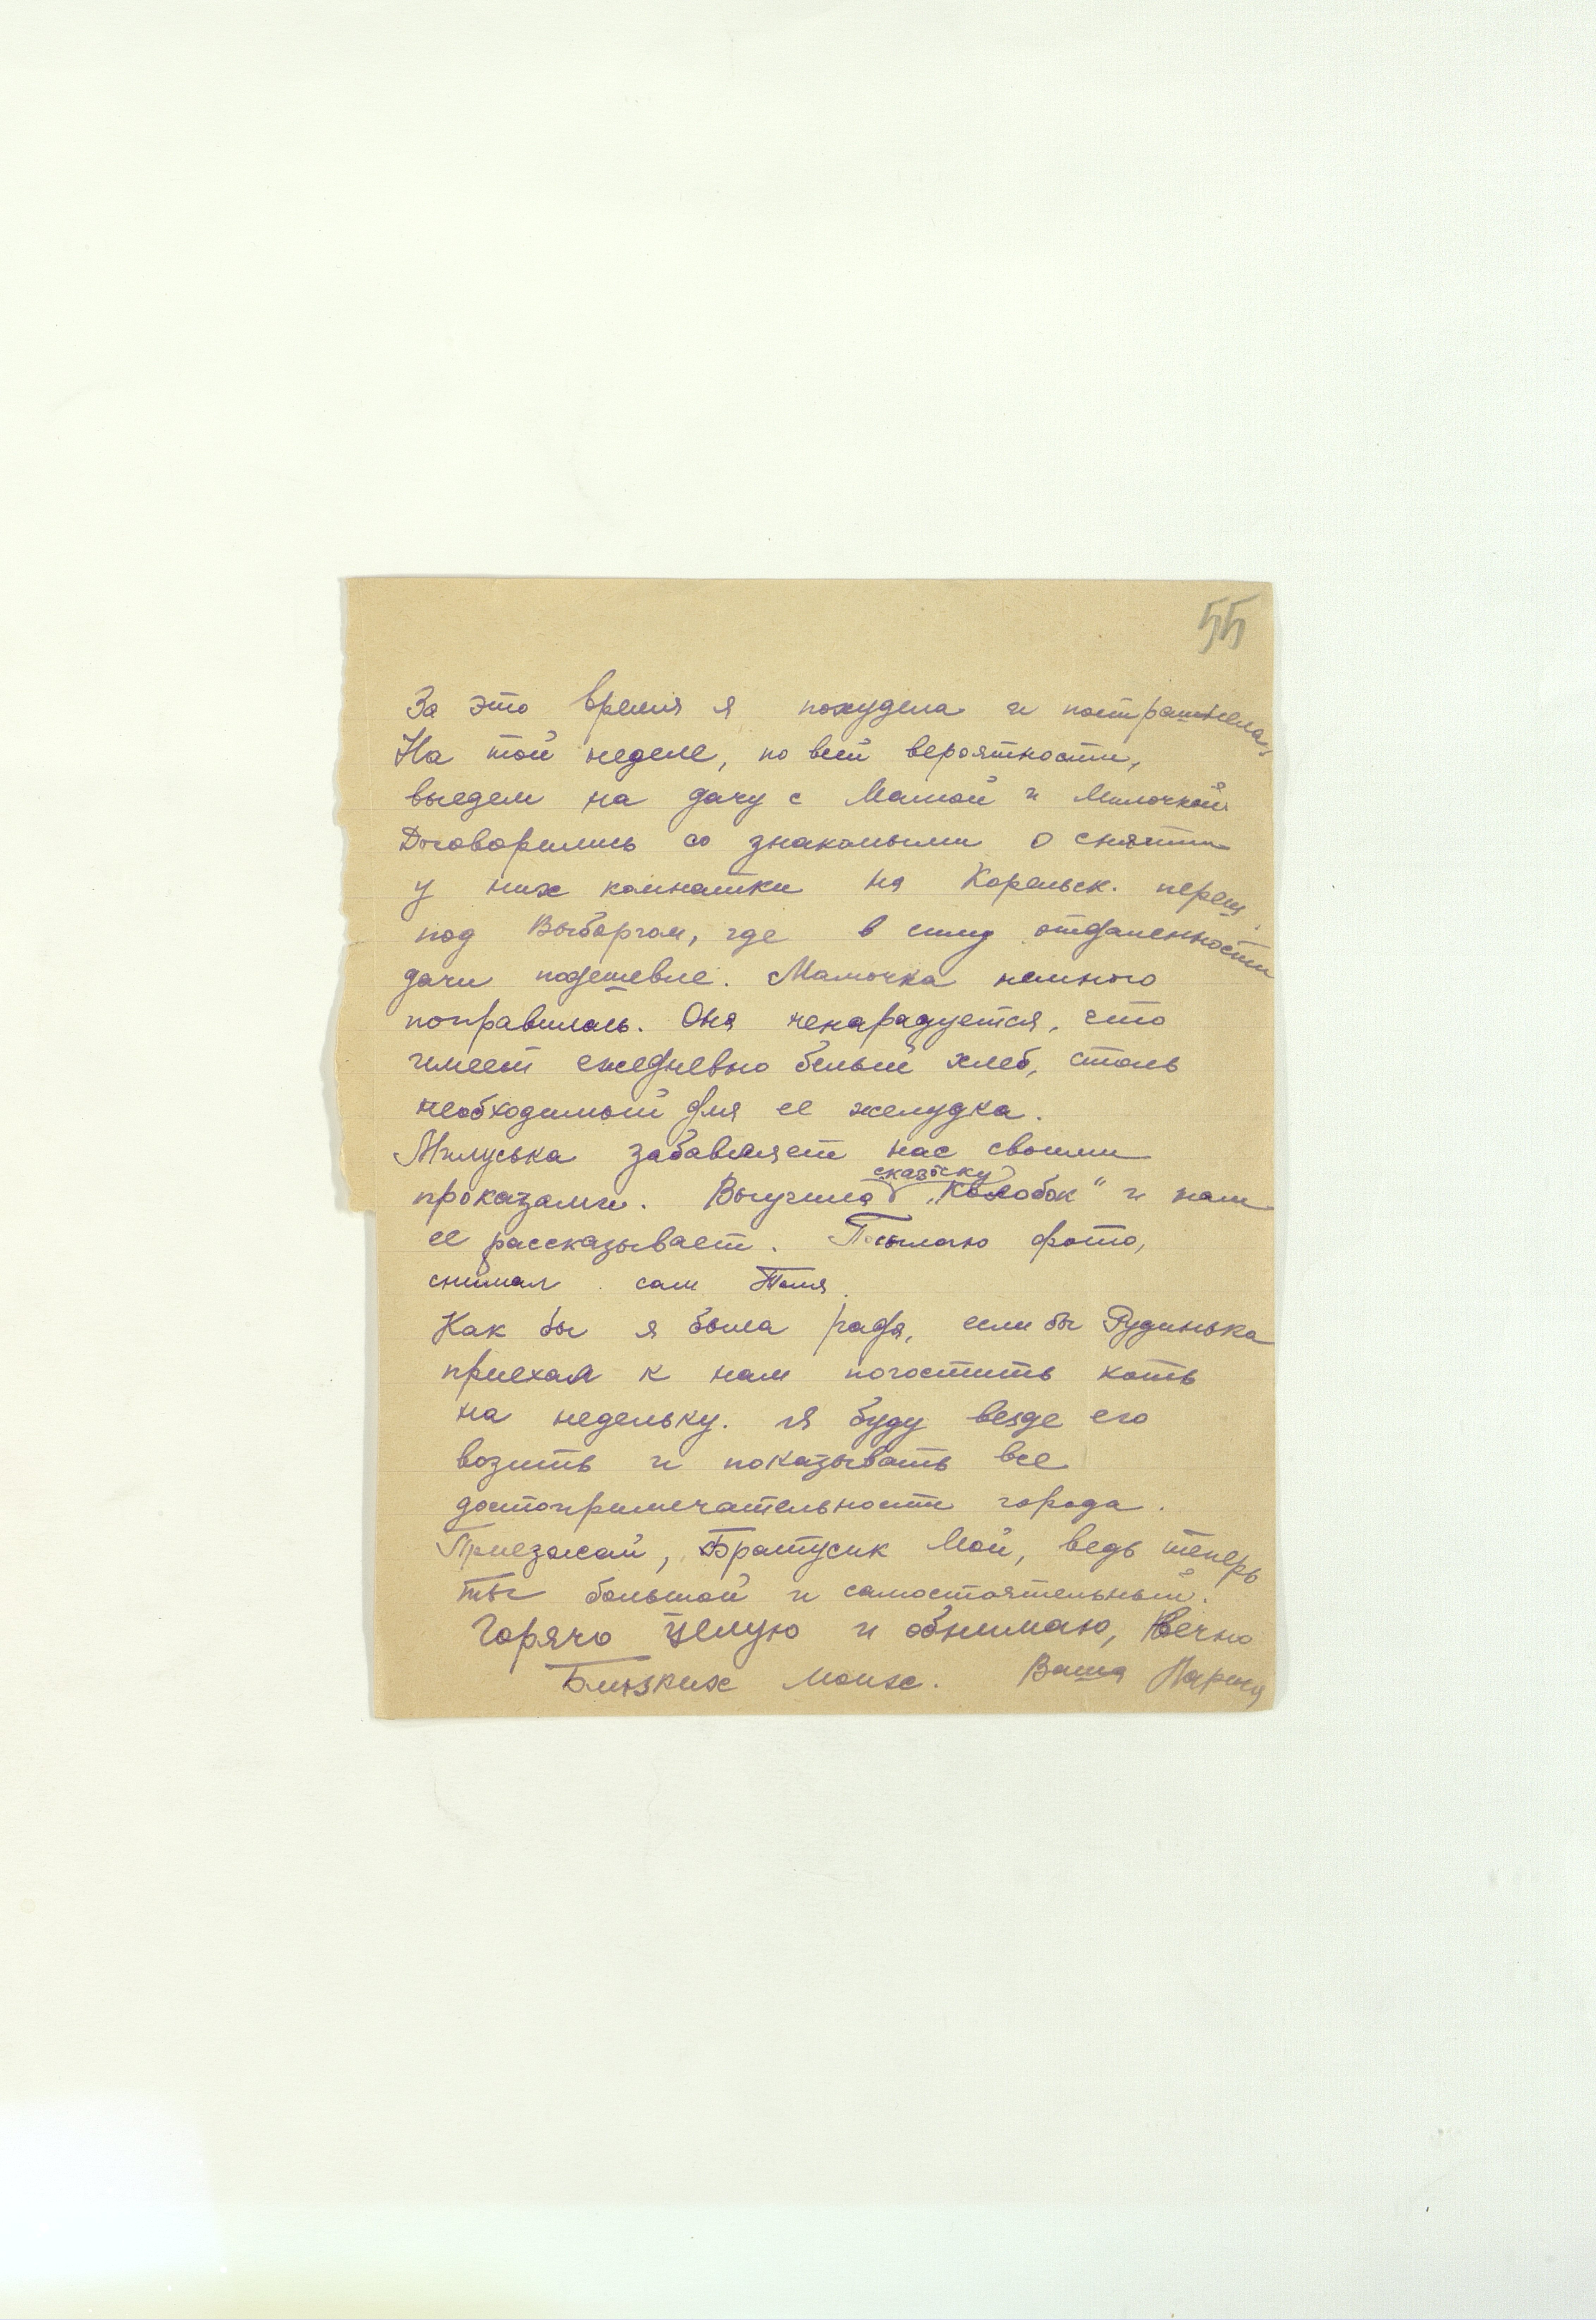 55
За это время я похудела и пострашнела.
На той неделе, по всей вероятности,
выедем на дачу с Мамой и Милочкой
Договорились со знакомыми о снятии
у них комнатки на Карельск. переш.
под Выборгом, где в силу отдаленности
дачи подешевле. Мамочка немного
поправилась. Она ненарадуется, что
имеет ежедневно белый хлеб, столь
необходимый для ее желудка.
Милуська забавляет нас своими
проказами. Выучила сказочку „Колобок" и нам
ее рассказывает. Посылаю фото,
снимал сам Толя.
Как бы я была рада, если бы Рудинька
приехал к нам погостить хоть
на недельку. Я буду везде его
возить и показывать все
достопримечательности города.
Приезжай, Братусик Мой, ведь теперь
ты большой и самостоятельный.
Горячо целую и обнимаю, вечно
Близких моих. Ваша